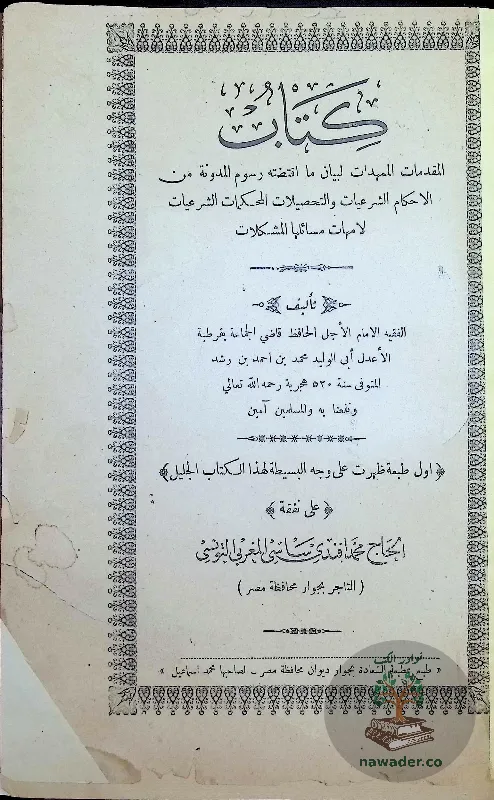 كتاب
المقدمات الممهدات لبيان ما اقتضته رسوم المدونة من
الاحكام الشرعيات والتحصيلات المحكمات الشرعيات
لامهات مسائلها المشكلات
تأليف
الفقيه الامام الأجل الحافظ قاضي الجماعة بقرطبة
الأعدل أبي الوليد محمد بن احمد بن رشد
المتوفى سنة ٥٢٠ هجرية رحمه الله تعالي
ونفعنا به والمسلمين آمين
﴿ اول طبعة ظهرت على وجه البسيطة لهذا الكتاب الجليل ﴾
﴿ على نفقة ﴾
الحاج محمد افندي ساسي المغربي التونسي
( التاجر بجوار محافظة مصر )
« طبع بمطبعة السعادة بجوار ديوان محافظة مصر لصاحبها محمد اسماعيل »
نوادر الكتب
nawader.co